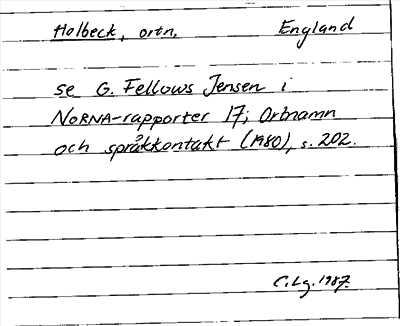 Holbeck, ortn. England
se G. Fellows Jensen i
NORNA-rapporter 17; Ortnamn
och språkkontakt (1980), s. 202.
C. Lg. 1987